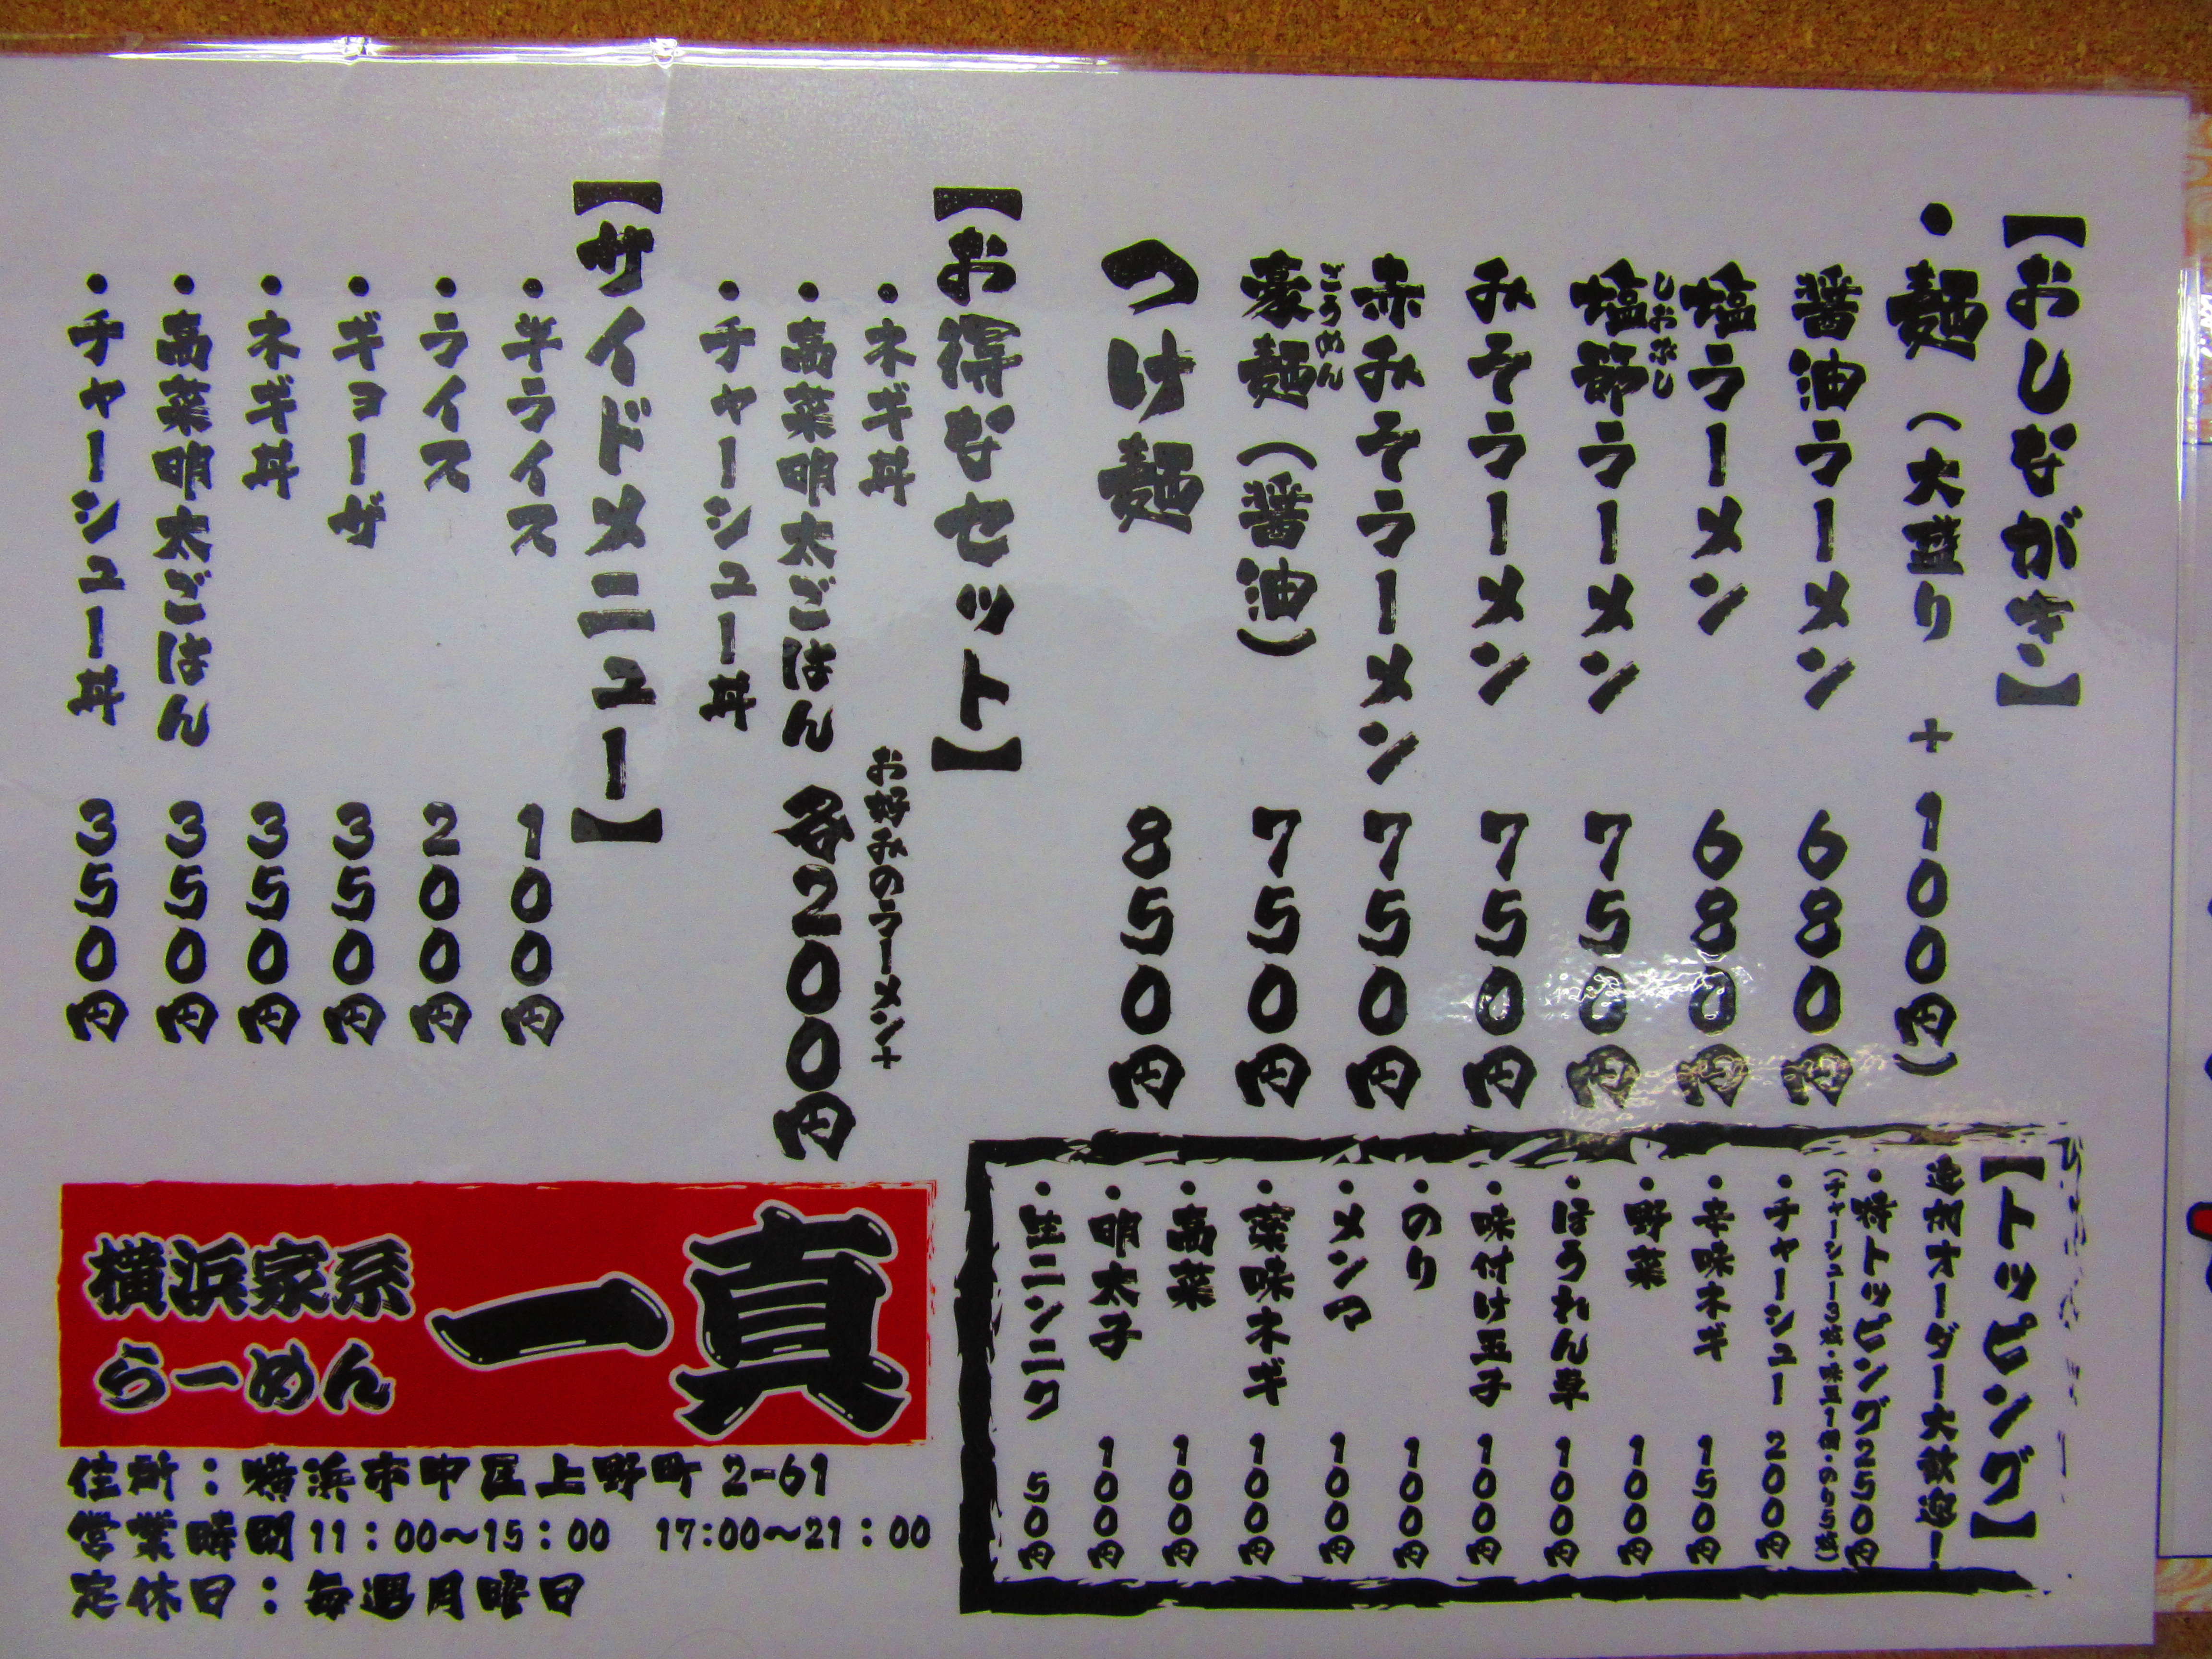 【おしながき】
・麺（大盛り ＋100円）
醤油ラーメン 680円
塩ラーメン 680円
しおぶし
塩節ラーメン 750円
みそラーメン 750円
赤みそラーメン 750円
ごうめん
豪麺（醤油） 750円
つけ麺 850円
【お得なセット】
お好みのラーメン＋
・ネギ丼
・高菜明太ごはん 各200円
・チャーシュー丼
【サイドメニュー】
・半ライス 100円
・ライス 200円
・ギョーザ 350円
・ネギ丼 350円
・高菜明太ごはん 350円
・チャーシュー丼 350円
【トッピング】
追加オーダー大歓迎！
・特トッピング250円
（チャーシュー3枚・味玉1個・のり5枚）
・チャーシュー 200円
・辛味ネギ 150円
・野菜 100円
・ほうれん草 100円
・味付け玉子 100円
・のり 100円
・メンマ 100円
・薬味ネギ 100円
・高菜 100円
・明太子 100円
・生ニンニク 50円
横浜家系
らーめん
一真
住所：横浜市中区上野町2-61
営業時間11：00～15：00 17:00～21：00
定休日：毎週月曜日